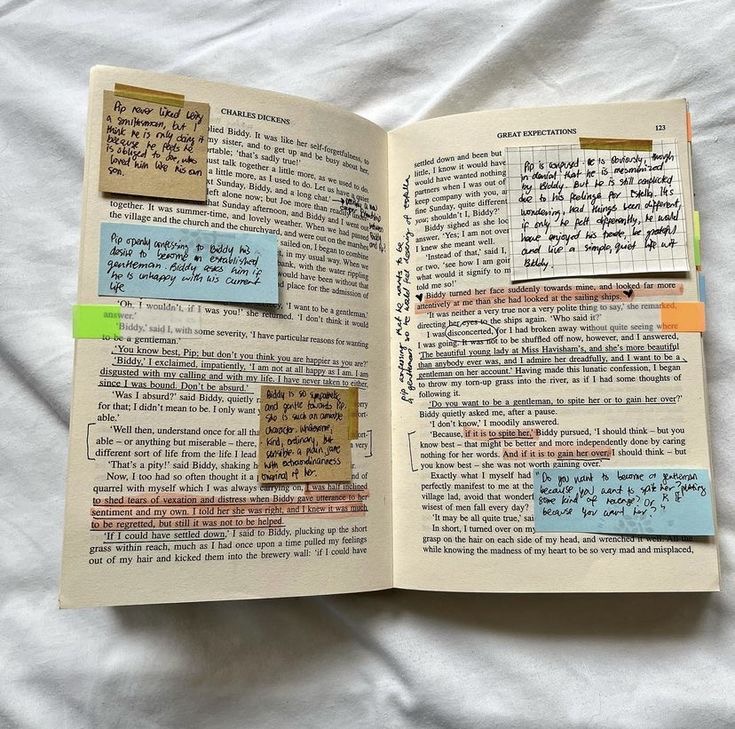 CHARLES DICKENS
Pip never liked being
a smithsman, but I
think he is only doing it
because he feels he
is obliged to Joe, who
loved him like his own
son.
plied Biddy. It was like her self-forgetfulness, to
my sister, and to get up and be busy about her,
ortable; 'that's sadly true!'
ust talk together a little more, as we used to do.
me a little more, as I used to do. Let us have a quiet
xt Sunday, Biddy, and a long chat.'
left alone now; but Joe more than
that Sunday afternoon, and Biddy and I went out
together. It was summer-time, and lovely weather. When we had passed
the village and the church and the churchyard, and were out on the marshes
Pip openly confessing to Biddy his
desire to become an established
gentleman. Biddy asks him if
he is unhappy with his current
life
sailed on, I began to combine
t, in my usual way. When we
bank, with the water rippling
would have been without that
d place for the admission of
I want to be a gentleman.'
'Oh, I wouldn't, if I was you!' she returned. 'I don't think it would
answer.'
'Biddy,' said I, with some severity, 'I have particular reasons for wanting
to be a gentleman.'
'You know best, Pip; but don't you think you are happier as you are?'
'Biddy,' I exclaimed, impatiently, 'I am not at all happy as I am. I am
disgusted with my calling and with my life. I have never taken to either,
since I was bound. Don't be absurd.'
'Was I absurd?' said Biddy, quietly
for that; I didn't mean to be. I only want
able.'
'Well then, understand once for all tha
able – or anything but miserable – there,
different sort of life from the life I lead
'That's a pity!' said Biddy, shaking h
Now, I too had so often thought it a
Biddy is so sympathetic
and gentle towards Pip.
She is such an amiable
character. Wholesome,
kind, ordinary, but
sensible. a plain jane
with extraordinariness
of her.
quarrel with myself which I was always carrying on, I was half inclined
to shed tears of vexation and distress when Biddy gave utterance to her
sentiment and my own. I told her she was right, and I knew it was much
to be regretted, but still it was not to be helped.
'If I could have settled down,' I said to Biddy, plucking up the short
grass within reach, much as I had once upon a time pulled my feelings
out of my hair and kicked them into the brewery wall: 'if I could have
GREAT EXPECTATIONS
123
settled down and been but
little, I know it would have
would have wanted nothing
partners when I was out of
keep company with you, an
fine Sunday, quite different
you, shouldn't I, Biddy?'
Biddy sighed as she look
answer, 'Yes; I am not over
knew she meant well.
'Instead of that,' said I,
or two, 'see how I am goin
what would it signify to m
told me so!'
Pip is confused. He is obviously, though
in denial that he is mesmerized
by Biddy. But he is still conflicted
due to his feelings for Estella. It's
wondering, had things been different,
if only he felt differently, he would
have enjoyed his trade, be grateful
and live a simple, quiet life wit
Biddy.
pip confessing that he wants to be
a gentleman
Biddy turned her face suddenly towards mine, and looked far more
attentively at me than she had looked at the sailing ships.
'It was neither a very true nor a very polite thing to say,' she remarked,
directing her eyes to the ships again. 'Who said it?'
I was disconcerted, for I had broken away without quite seeing where
I was going. It was not to be shuffled off now, however, and I answered,
'The beautiful young lady at Miss Havisham's, and she's more beautiful
than anybody ever was, and I admire her dreadfully, and I want to be a
gentleman on her account.' Having made this lunatic confession, I began
to throw my torn-up grass into the river, as if I had some thoughts of
following it.
'Do you want to be a gentleman, to spite her or to gain her over?'
Biddy quietly asked me, after a pause.
'I don't know,' I moodily answered.
'Because, if it is to spite her,' Biddy pursued, 'I should think – but you
know best – that might be better and more independently done by caring
nothing for her words. And if it is to gain her over, I should think – but
you know best – she was not worth gaining over.'
Exactly what I myself had
perfectly manifest to me at the
village lad, avoid that wonder
wisest of men fall every day?
'It may be all quite true,' sai
In short, I turned over on m
"Do you want to become a gentleman
because you want to spite her, plotting
some kind of revenge? Or
because you want her?"
grasp on the hair on each side of my head, and wrenched it well. All the
while knowing the madness of my heart to be so very mad and misplaced,